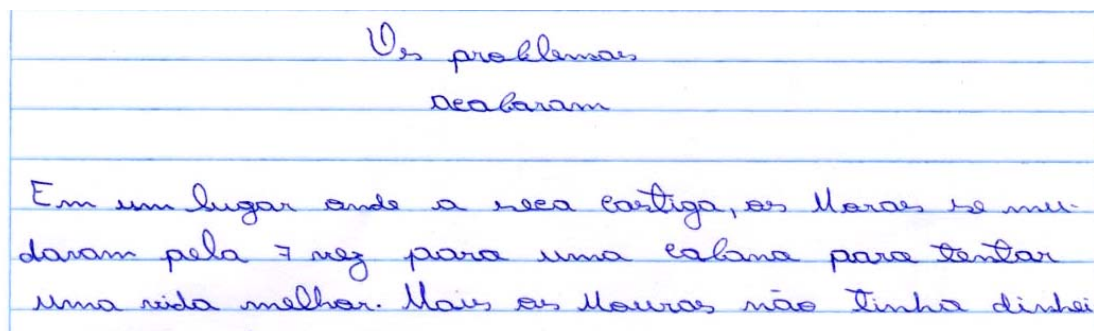 Os problemas
acabaram
Em um lugar onde a seca castiga, os Moraes se mu-
daram pela 7 vez para uma cabana para tentar
uma vida melhor. Mais os Mouras não tinha dinhei